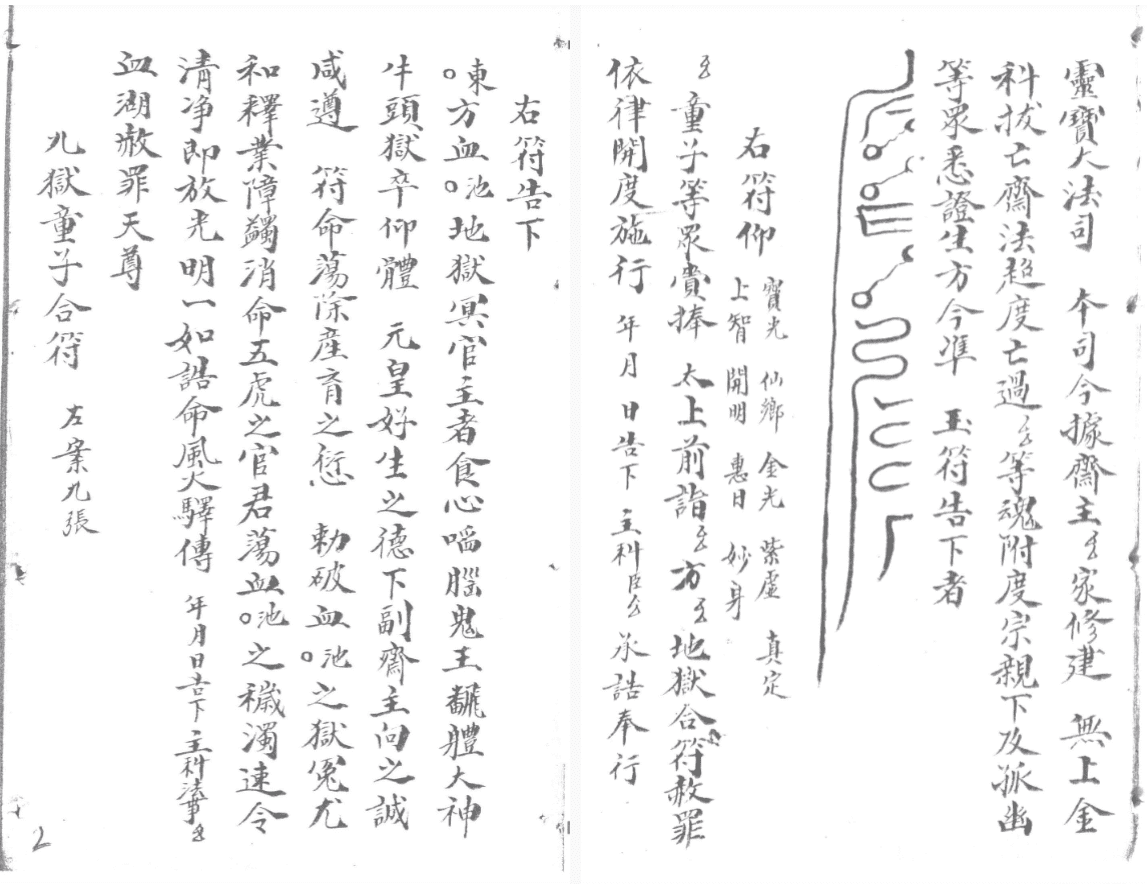 靈寶大法司　本司今據齋主〻家修建　無上金
科拔亡齋法超度亡過〻等魂附度宗親下及孤幽
等眾悉證生方今準　玉符告下者
右符仰
寶光　仙鄉　金光　紫虛　真定
上智　開明　惠日　妙身
〻童子等眾賫捧　太上前詣〻方〻地獄合符赦罪
依律開度施行　年月　日告下　主科臣〻承誥奉行
右符告下
東方血池地獄冥官主者食心啗腦鬼王飜體大神
牛頭獄卒仰體　元皇好生之德下副齋主向之誠
咸遵　符命蕩除產育之愆　勅破血池之獄冤尤
和釋業障蠲消命五虎之官君蕩血池之穢濁速令
清净即放光明一如誥命風火驛傳　年月日告下主科法事〻
血湖赦罪天尊
九獄童子合符　左案九張
2